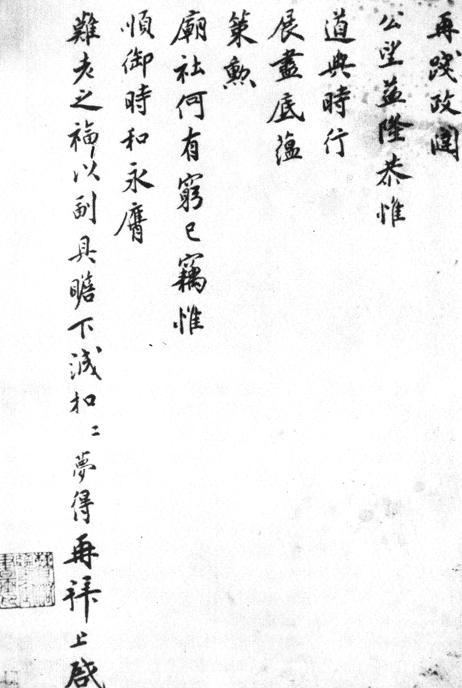 再踐政閣
公望益隆恭惟
道與時行
展盡底蘊
策勲
廟社何有窮已竊惟
順御時和永膺
難老之福以副具瞻下誠扣〻夢得再拜上啓